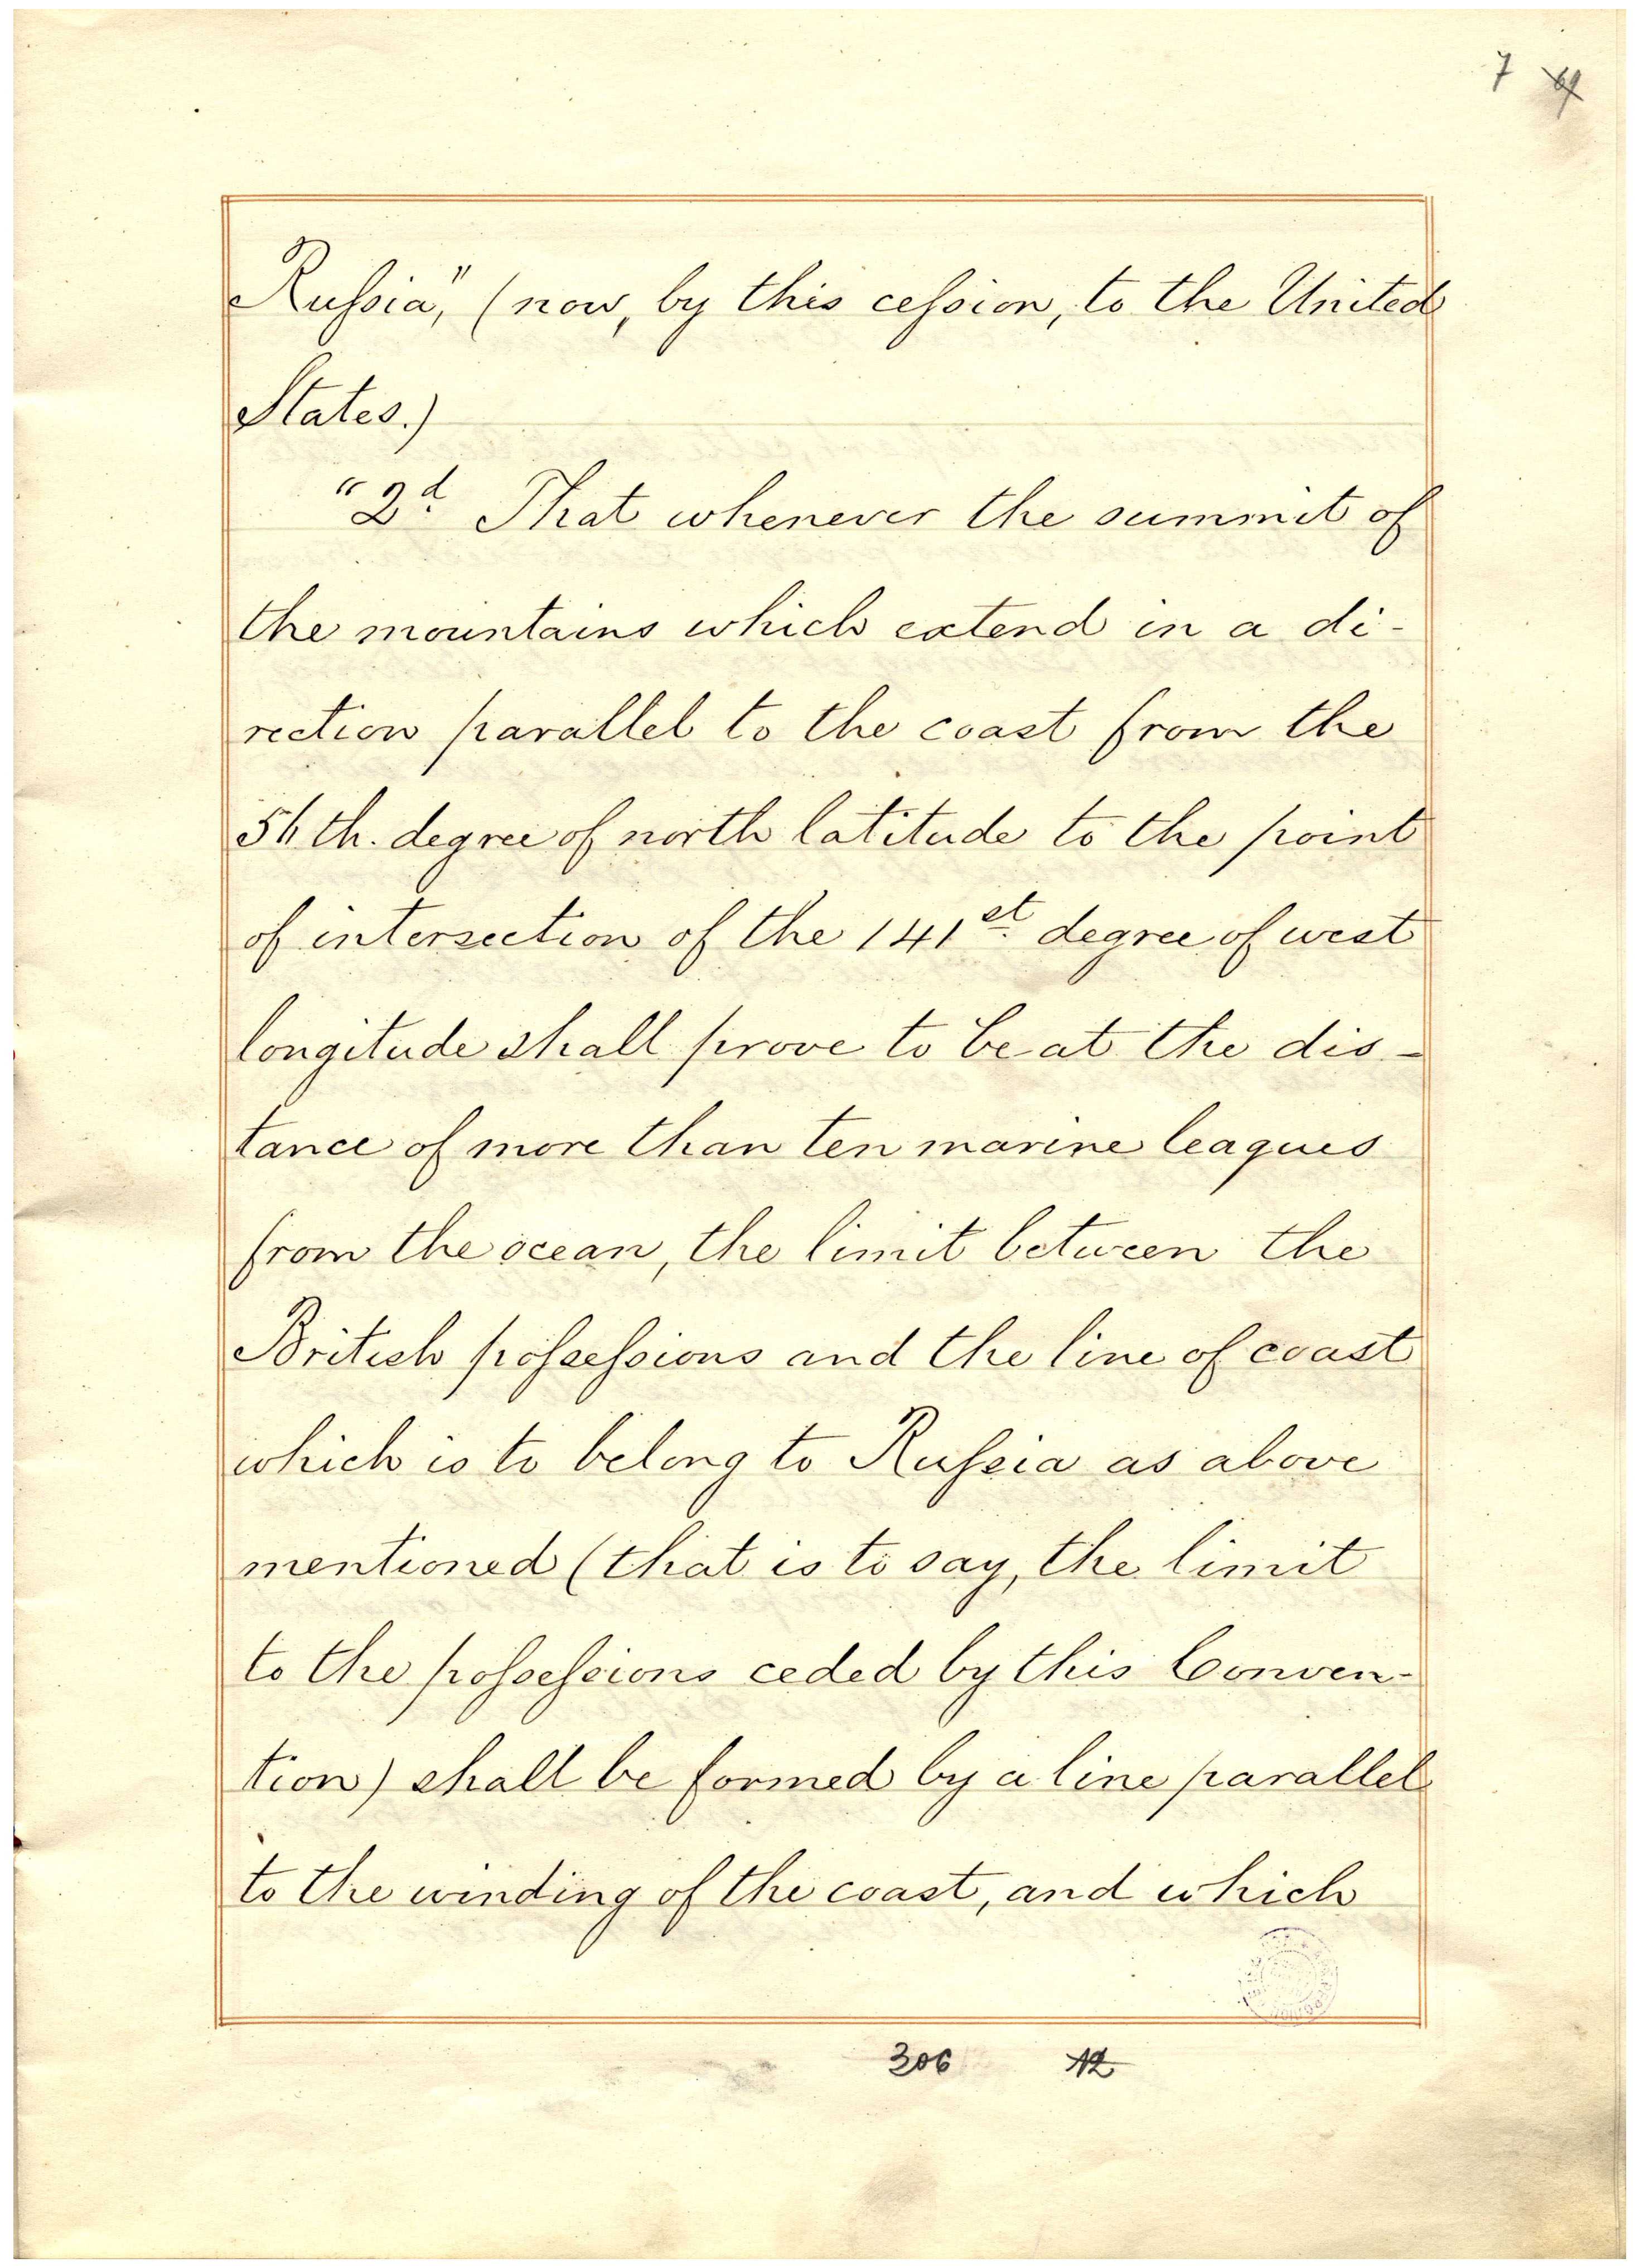 7 69
Russia," (now, by this cession, to the United
States.)
"2d. That whenever the summit of
the mountains which extend in a di-
rection parallel to the coast from the
56th. degree of north latitude to the point
of intersection of the 141st. degree of west
longitude shall prove to be at the dis-
tance of more than ten marine leagues
from the ocean, the limit between the
British possessions and the line of coast
which is to belong to Russia as above
mentioned (that is to say, the limit
to the possessions ceded by this Conven-
tion) shall be formed by a line parallel
to the winding of the coast, and which
306 12